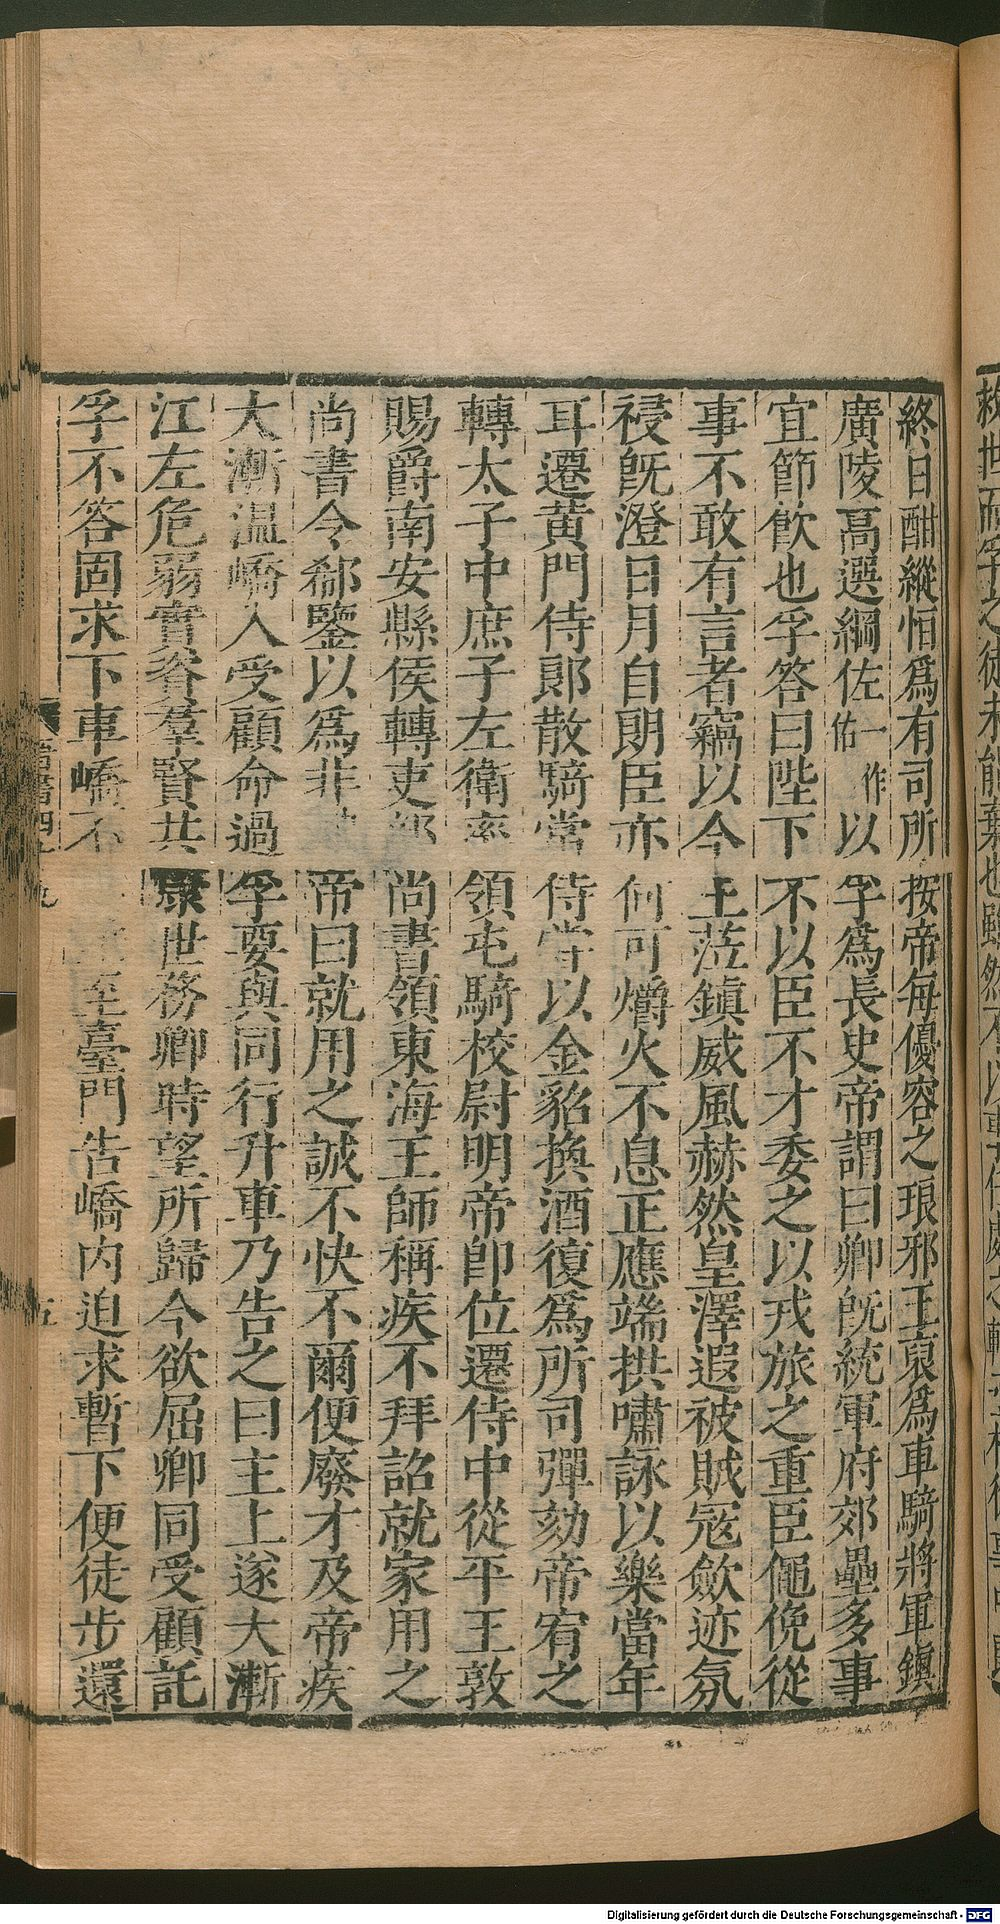 終日酣縱恒爲有司所按帝每優容之琅邪王裒爲車騎將軍鎮
廣陵高選綱佐一作佑以孚爲長史帝謂曰卿旣統軍府郊壘多事
宜節飮也孚答曰陛下不以臣不才委之以戎旅之重臣僶俛從
事不敢有言者竊以今王莅鎮威風赫然皇澤遐被賊寇歛迹氛
祲旣澄日月自朗臣亦何可爝火不息正應端拱嘯詠以樂當年
耳遷黄門侍郞散騎常侍嘗以金貂換酒復爲所司彈劾帝宥之
轉太子中庶子左衛率領屯騎校尉明帝卽位遷侍中從平王敦
賜爵南安縣侯轉吏部尚書領東海王師稱疾不拜詔就家用之
尚書令郗鑒以爲非 帝曰就用之誠不快不爾便廢才及帝疾
大漸温嶠入受顧命過孚要與同行升車乃告之曰主上遂大漸
江左危弱實資羣賢共康世務卿時望所歸今欲屈卿同受顧託
孚不答固求下車嶠不 至臺門告嶠内迫求暫下便徒步還
五
Digitalisierung gefördert durch die Deutsche Forschungsgemeinschaft - DFG